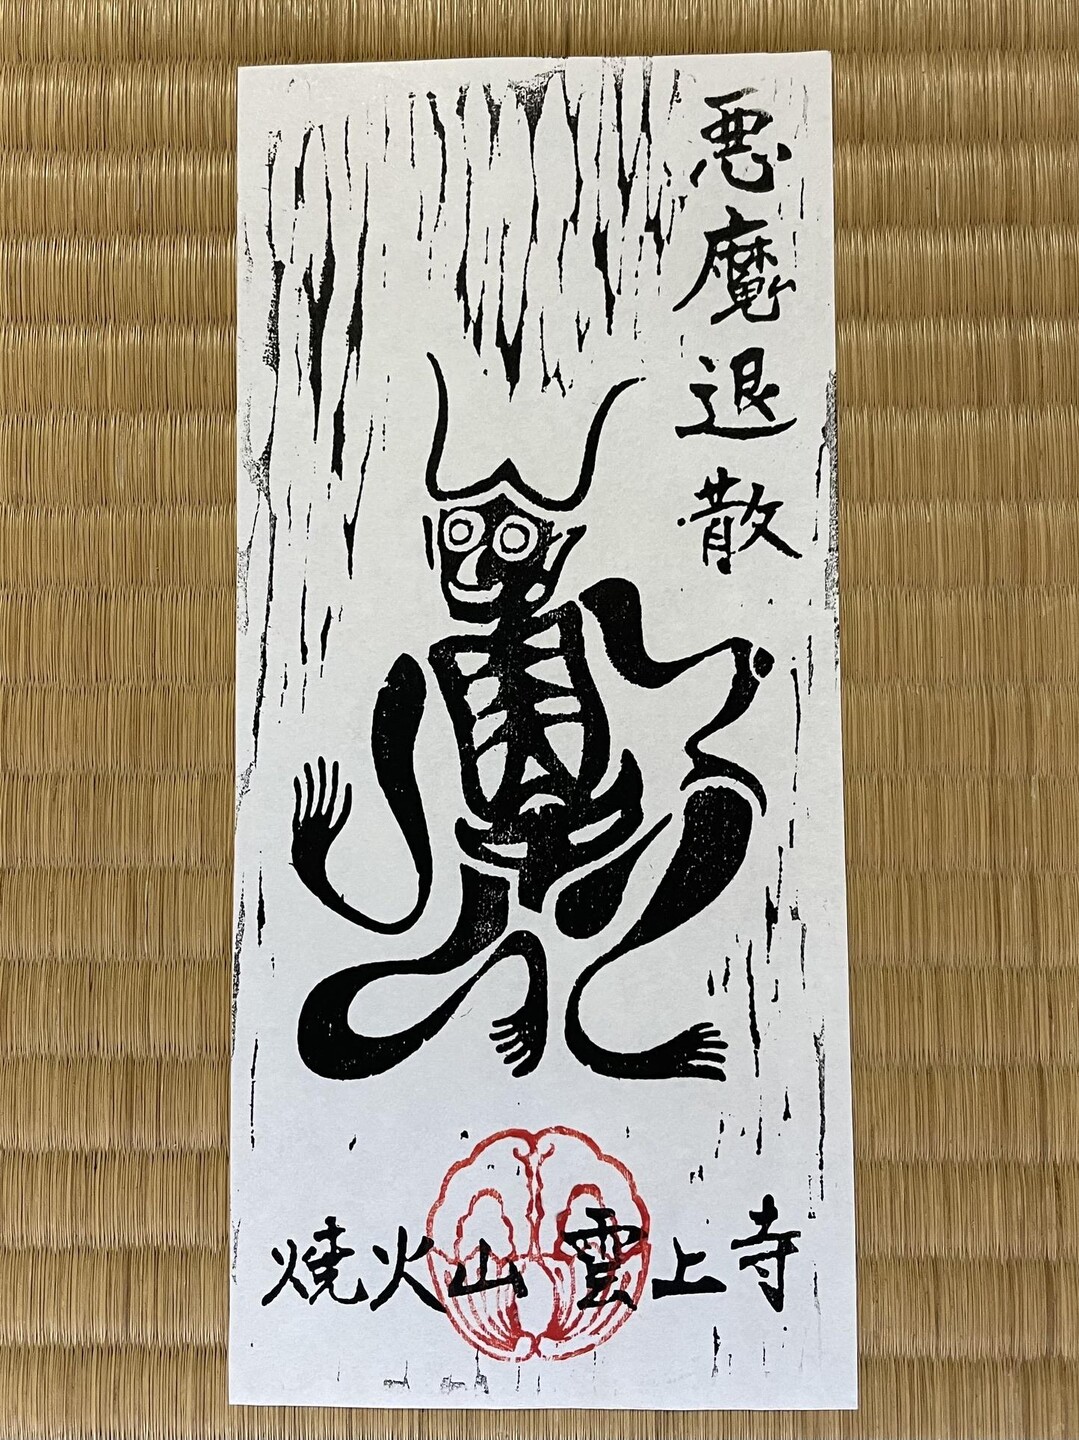 悪魔退散
焼火山 雲上寺